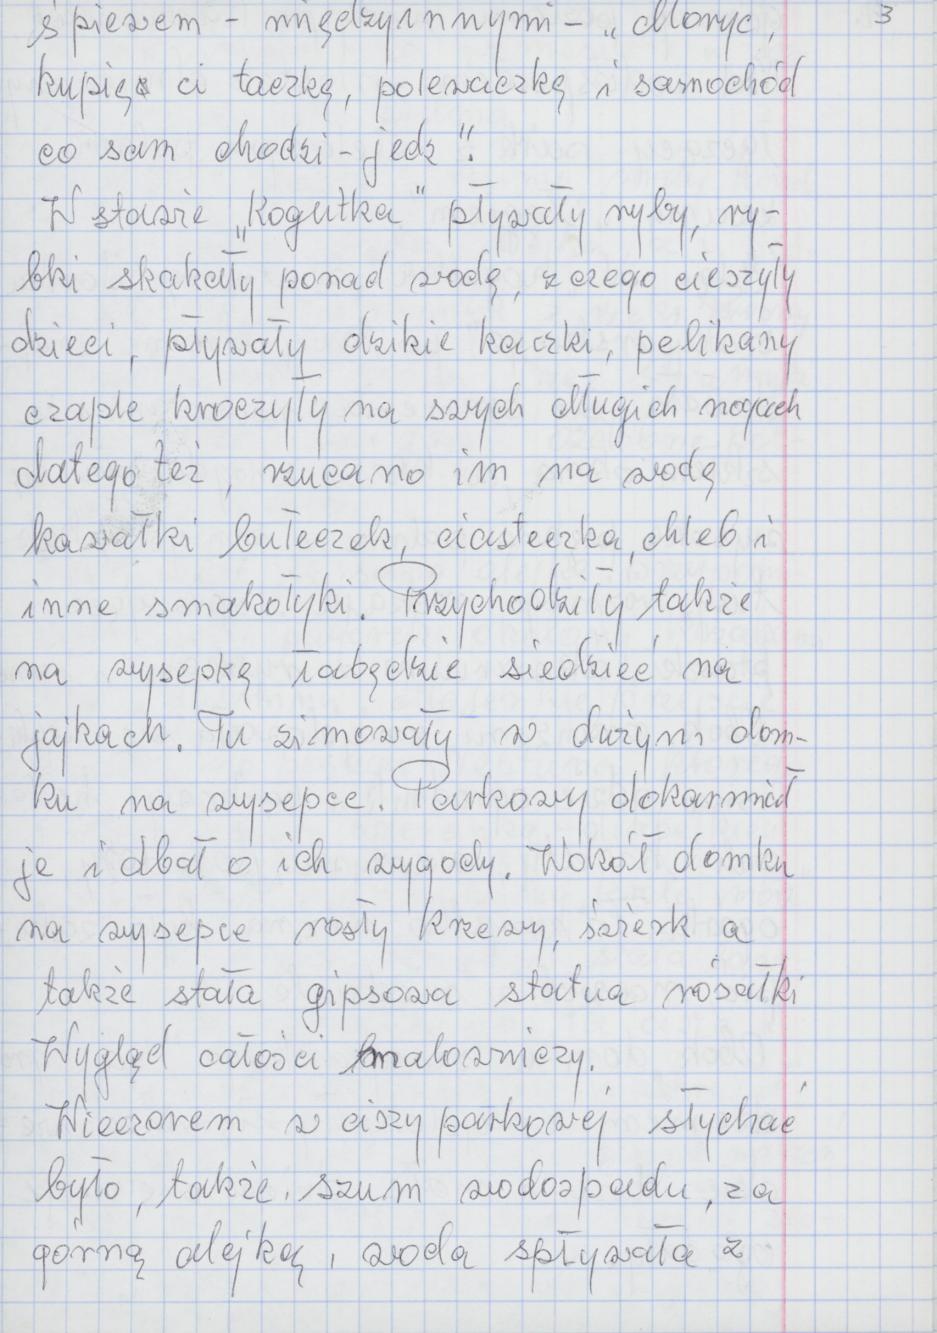 3
śpiewem - międzyinnymi - „Moryc,
kupię ci taczkę, polewaczkę i samochód
co sam chodzi - jedz".
W stawie „Kogutka" pływały ryby, ry-
bki skakały ponad wodę, z czego cieszyły
dzieci, pływały dzikie kaczki, pelikany
czaple kroczyły na swych długich nogach
dlatego też, rzucano im na wodę
kawałki bułeczek, ciasteczka, chleb i
inne smakołyki. Przychodziły także
na wysepkę łabędzie siedzieć na
jajkach. Tu zimowały w dużym dom-
ku na wysepce. Parkowy dokarmiał
je i dbał o ich wygody. Wokół domku
na wysepce rosły krzewy, świerk a
także stała gipsowa statua rósałki
Wygląd całości malowniczy.
Wieczorem w ciszy parkowéj słychać
było, także, szum wodospadu, za
górną alejką, woda spływała z